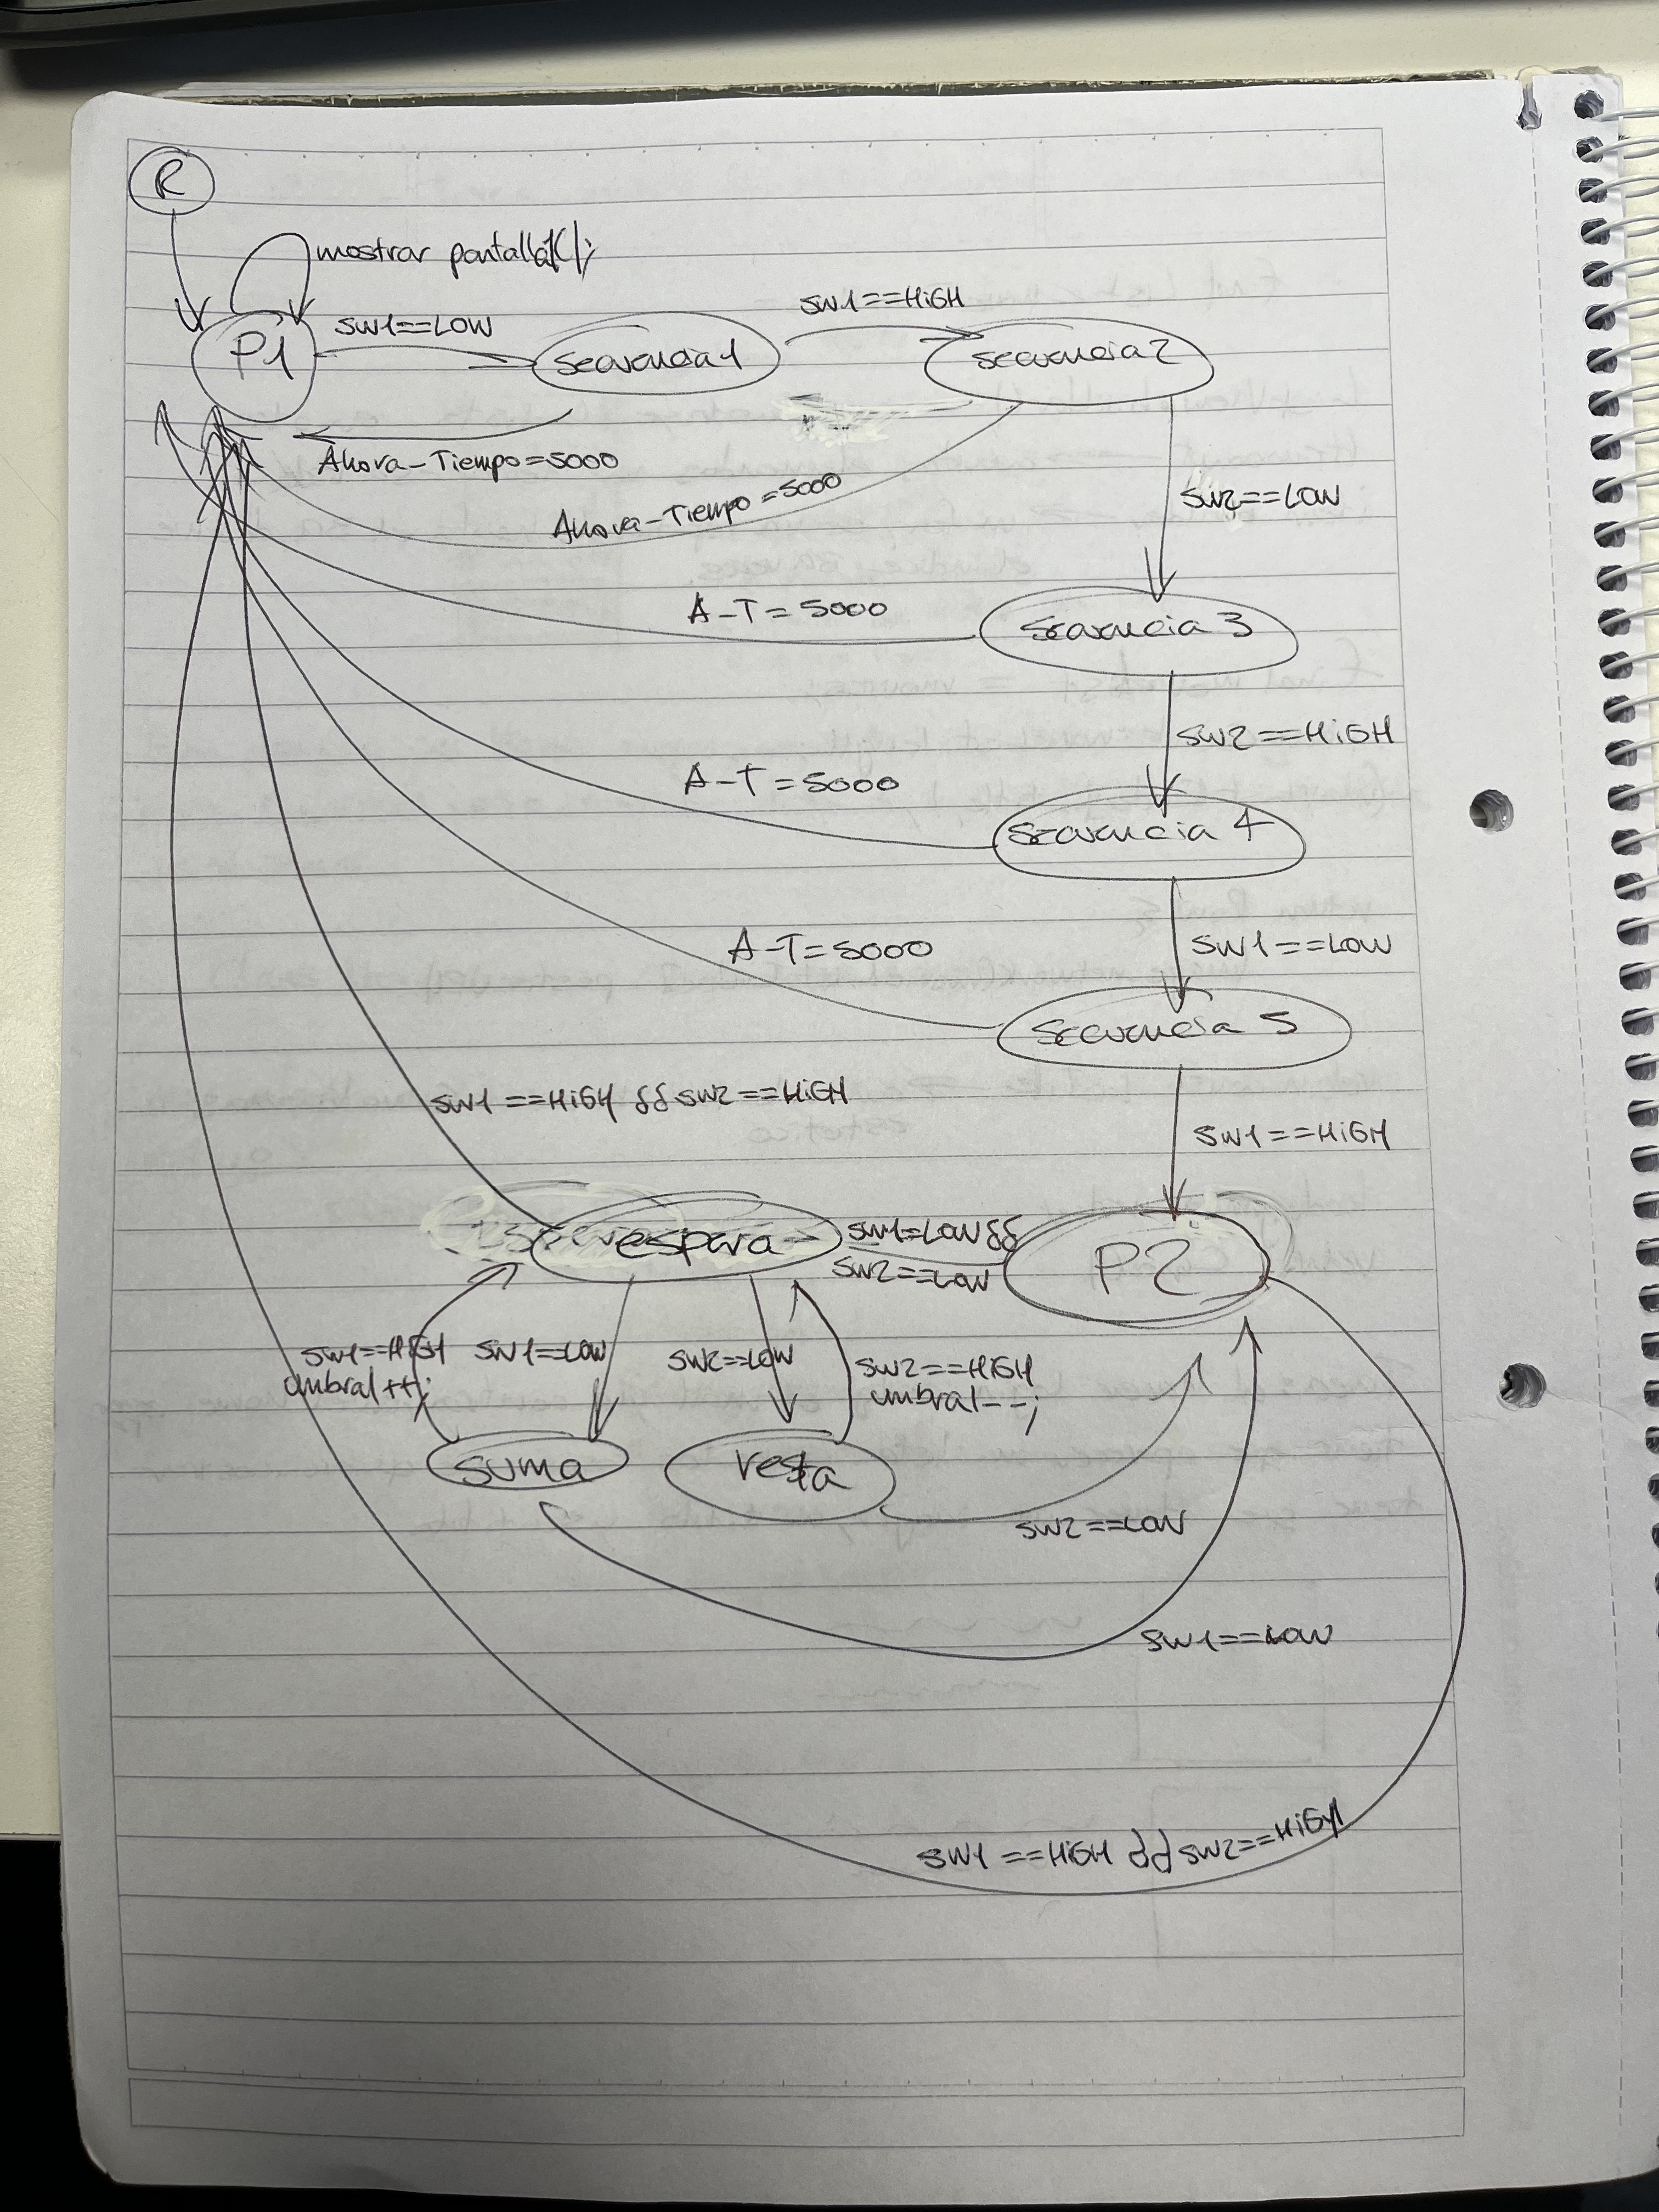 R
mostrar pantalla1();
P1
SW1==LOW
secuencia1
SW1==HIGH
secuencia2
Ahora-Tiempo=5000
Ahora-Tiempo=5000
SW2==LOW
A-T=5000
secuencia 3
SW2==HIGH
A-T=5000
secuencia 4
SW1==LOW
A-T=5000
secuencia 5
SW1==HIGH && SW2==HIGH
SW1==HIGH
espera
SW1=LOW &&
SW2==LOW
P2
SW1==HIGH
umbral++;
SW1==LOW
SW2==LOW
SW2==HIGH
umbral--;
suma
resta
SW2==LOW
SW1==LOW
SW1==HIGH && SW2==HIGH